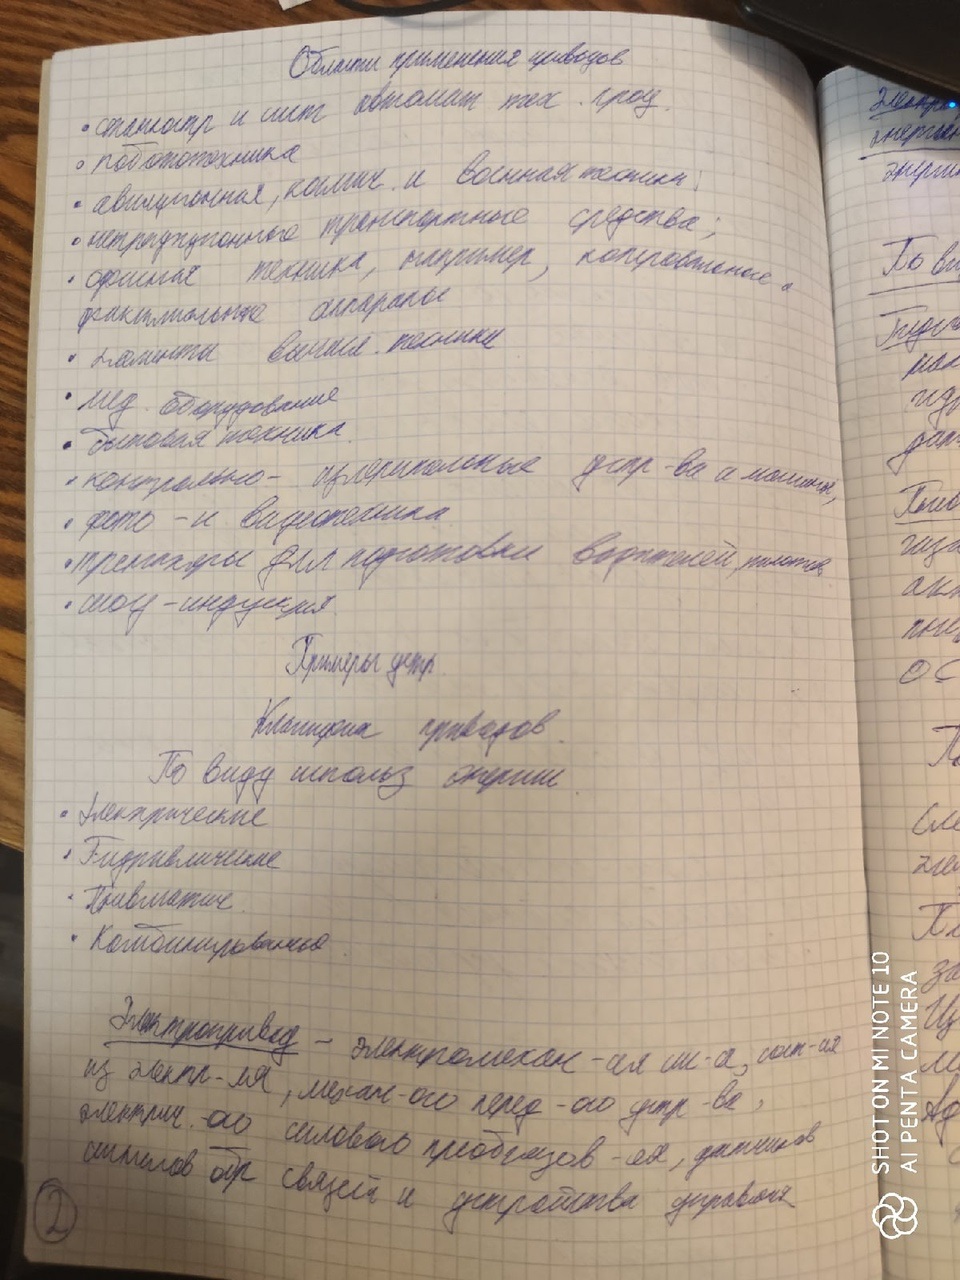 Области применения приводов
• станкостр и сист автомат тех. проц.
• робототехника
• авиационная, космич. и военная техника;
• нетрадиционные транспортные средства;
• офисная техника, например, копировальные.
факсимильные аппараты
• элементы вычисл. техники
• мед. оборудование
• бытовая техника.
• контрольно- измерительные устр-ва и машины,
• фото-и видеотехника
• тренажеры для подготовки водителей, пилотов
• шоу-индустрия.
Примеры устр.
Классифик приводов.
По виду использ энергии
• Электрические
• Гидравлические
• Пневматич.
• Комбинированные
Электропривод – электромехан-ая си-а, сост-ая
из электр-ля, механ-ого перед-ого устр-ва,
электрич-ого силового преобразов-ля, датчиков
сигналов обр связей и устройства управления
2
По ви
SHOT ON MI NOTE 10
AI PENTA CAMERA